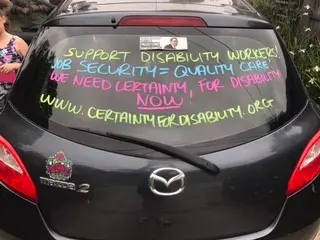 SUPPORT DISABILITY WORKERS!
JOB SECURITY = QUALITY CARE!
WE NEED CERTAINTY, FOR DISABILITY
NOW!
WWW.CERTAINTYFORDISABILITY.ORG
mazda 2